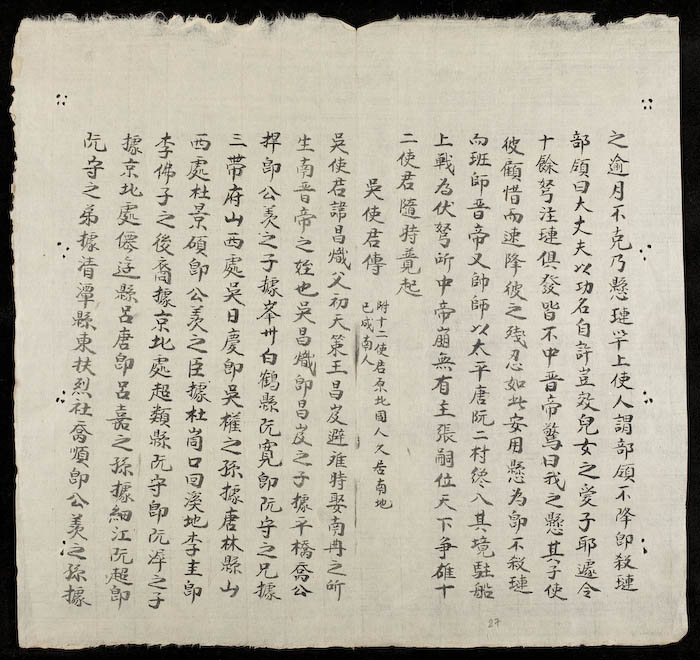 之逾月不克乃懸璉竿上使人謂部領不降即殺璉
部領曰大丈夫以功名自許豈效兒女之愛子耶遽令
十餘弩注璉俱發皆不中晋帝驚曰我之懸其子使
彼顧惜而速降彼之殘忍如此安用懸為即不殺璉
而班師晋帝又帥師以太平唐阮二村終入其境駐船
上戰為伏弩所中帝崩無有主張嗣位天下争雄十
二使君隨時竟起
吳使君傳
附十二使君原北國人久居南地
已成南人
吳使君諱昌熾父初天策王昌岌避难時娶南冉之所
生南晋帝之姪也吳昌熾即昌岌之子據平橋喬公
捍即公羨之子據峯州白鶴縣阮寬即阮守之兄據
三帶府山西處吳日慶即吳權之孫據唐林縣山
西處杜景碩即公羨之臣據杜崗口回溪地李圭即
李佛子之後裔據京北處超類縣阮守即阮滓之子
據京北處僊遊縣吕唐即吕嘉之孫據細江阮超即
阮守之弟據清潭縣東扶烈社喬順即公羨之孫據
27